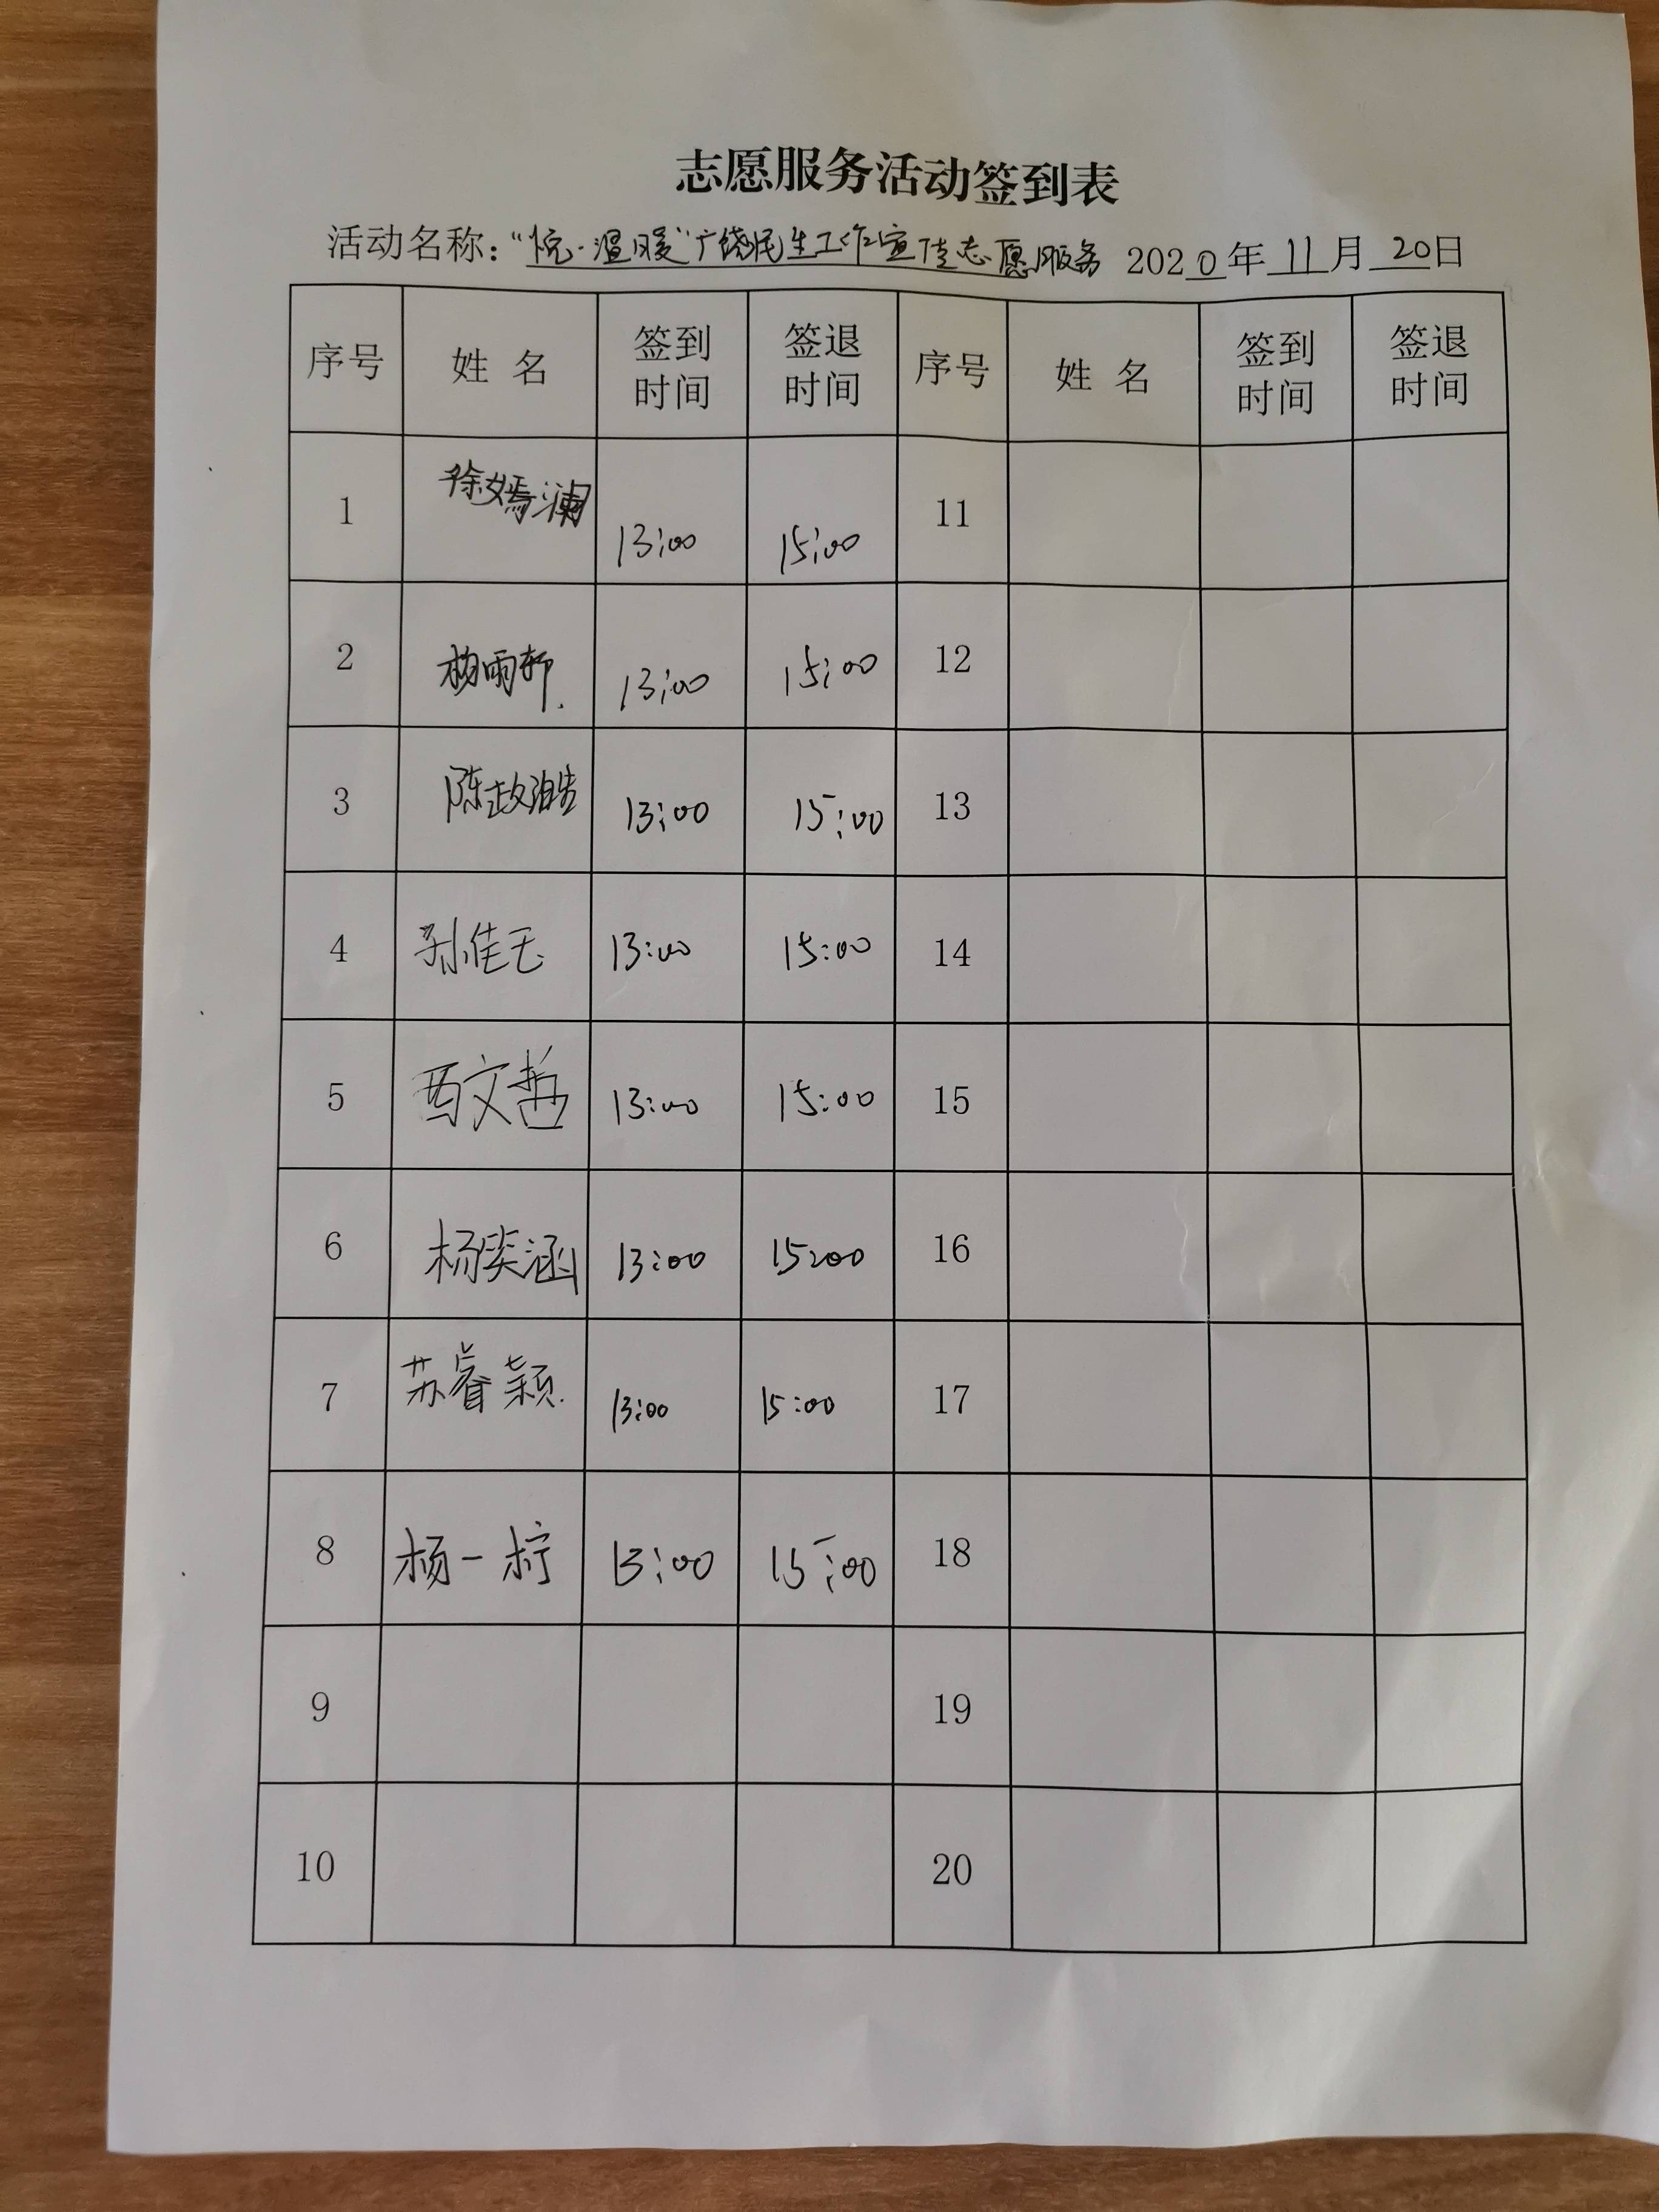 志愿服务活动签到表
活动名称："悦·温暖"广饶民生工作宣传志愿服务 2020年11月20日
序号 姓名 签到时间 签退时间 序号 姓名 签到时间 签退时间
1 徐嫣澜 13:00 15:00 11
2 杨雨轩 13:00 15:00 12
3 陈政皓 13:00 15:00 13
4 孙佳玉 13:00 15:00 14
5 西文哲 13:00 15:00 15
6 杨奕涵 13:00 15:00 16
7 苏睿颖 13:00 15:00 17
8 杨一柠 13:00 15:00 18
9 19
10 20